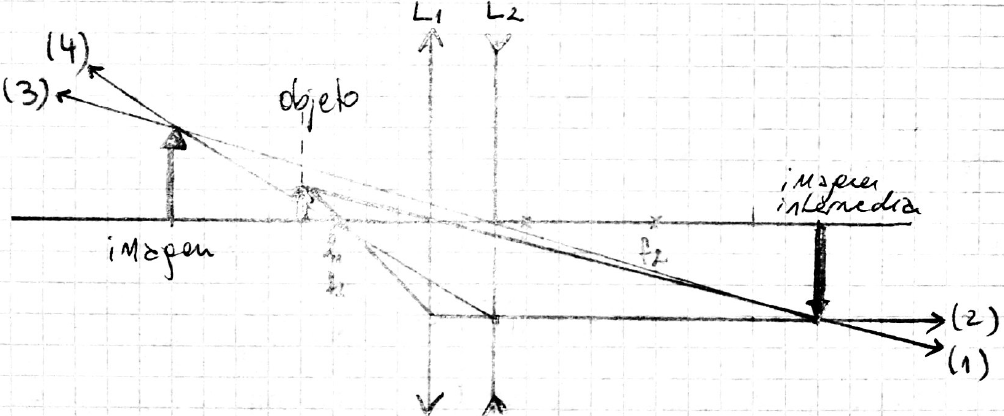 L1 L2
(4)
(3)
objeto
imagen
intermedia
imagen
f2
(2)
(1)